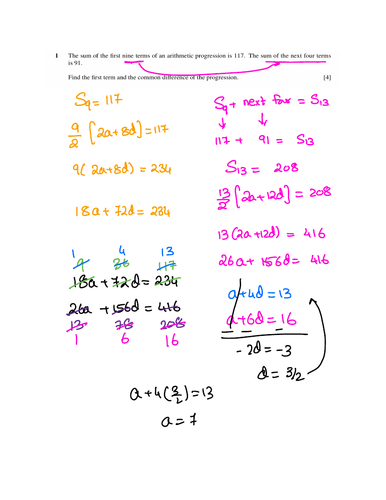 1 The sum of the first nine terms of an arithmetic progression is 117. The sum of the next four terms
is 91.
Find the first term and the common difference of the progression. [4]
S9 = 117
9/2 [2a+8d] = 117
9(2a+8d) = 234
18a + 72d = 234
1 4 13
9 36 117
18a + 72d = 234
26a + 156d = 416
13 78 208
1 6 16
S9 + next four = S13
↓ ↓
117 + 91 = S13
S13 = 208
13/2 [2a+12d] = 208
13(2a+12d) = 416
26a + 156d = 416
a+4d = 13
a+6d = 16
- - -
-2d = -3
d = 3/2
a + 4(3/2) = 13
a = 7